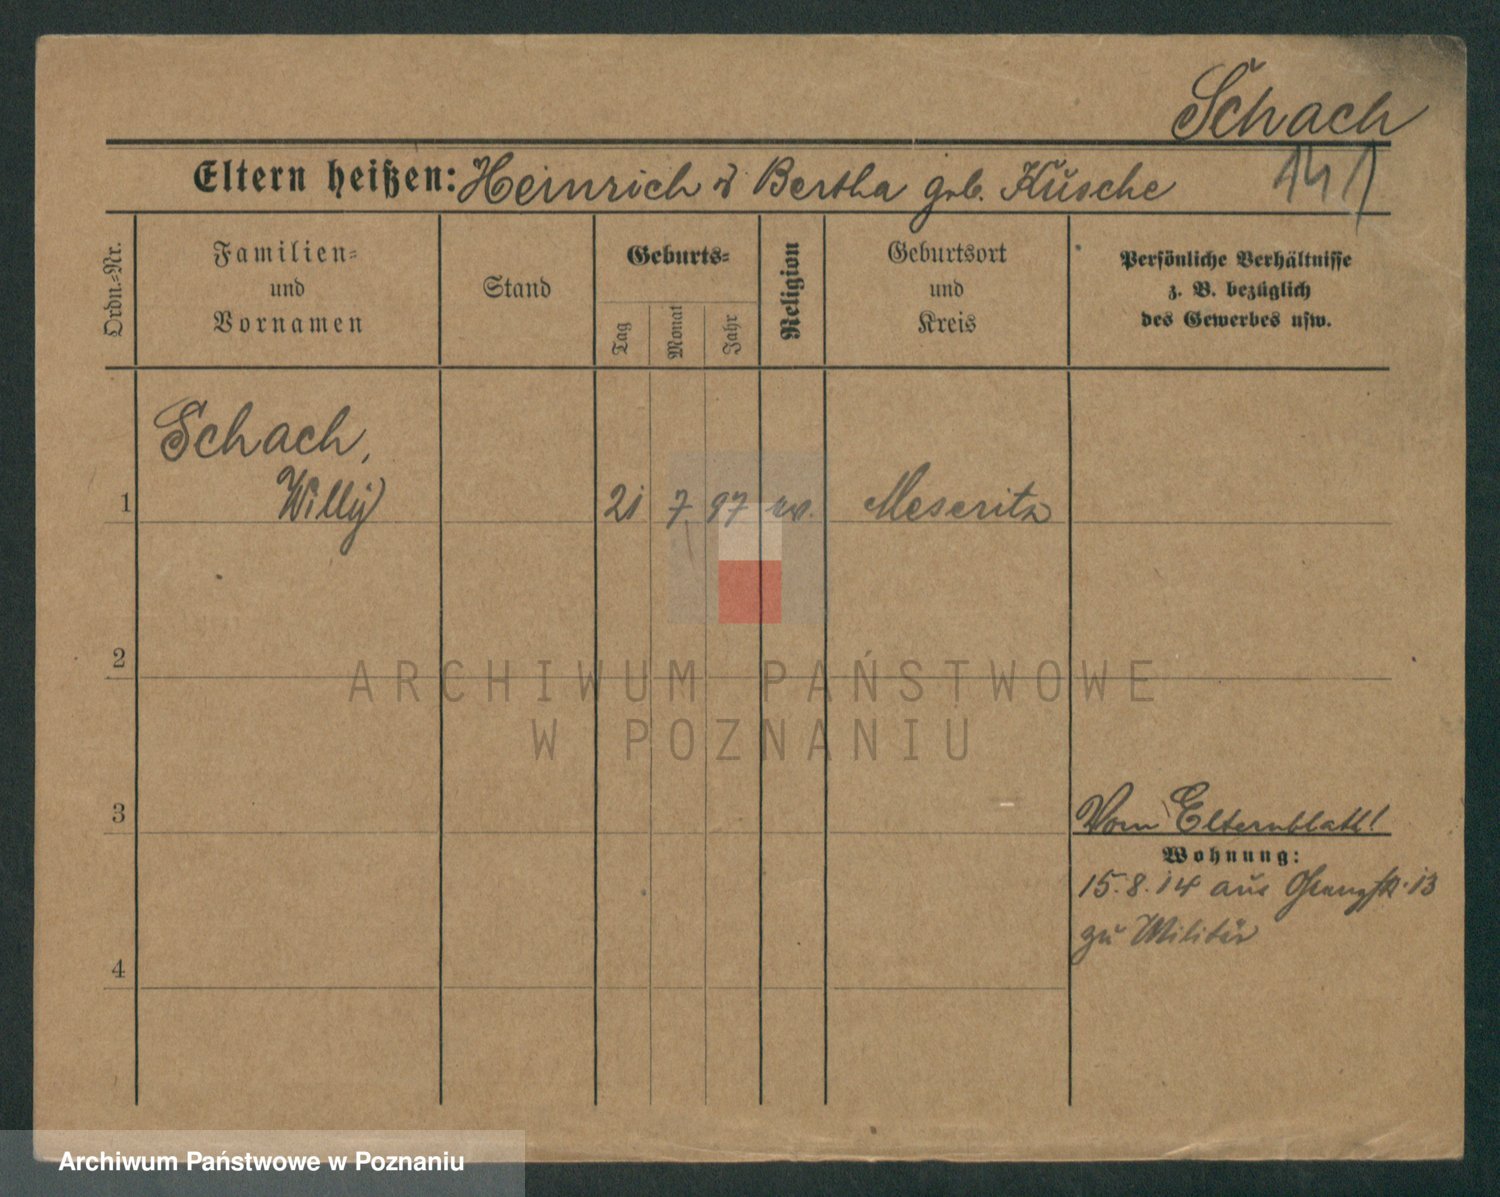 Schach
141
Eltern heißen: Heinrich & Bertha geb. Kusche
Ordn.=Nr.
Familien=
und
Vornamen
Stand
Geburts=
Tag
Monat
Jahr
Religion
Geburtsort
und
Kreis
Persönliche Verhältnisse
z. B. bezüglich
des Gewerbes usw.
Schach,
1 Willy 21 7 97 ev. Meseritz
2
ARCHIWUM PAŃSTWOWE
W POZNANIU
3
Vom Elternblatt!
Wohnung:
15.8.14 aus 13
zu Militär
4
Archiwum Państwowe w Poznaniu